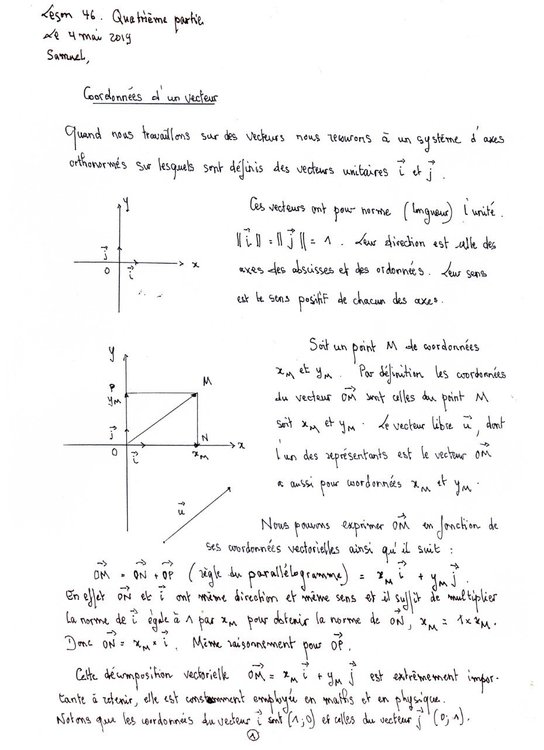 Leçon 46. Quatrième partie.
Le 4 mai 2019
Samuel,
Coordonnées d'un vecteur
Quand nous travaillons sur des vecteurs nous recourons à un système d'axes
orthonormés sur lesquels sont définis des vecteurs unitaires i⃗ et j⃗.
y
j⃗
O
i⃗
x
Ces vecteurs ont pour norme (longueur) l'unité.
||i⃗|| = ||j⃗|| = 1. Leur direction est celle des
axes des abscisses et des ordonnées. Leur sens
est le sens positif de chacun des axes.
y
P
M
yM
j⃗
N
O
i⃗
xM
x
u⃗
Soit un point M de coordonnées
xM et yM. Par définition les coordonnées
du vecteur OM⃗ sont celles du point M
soit xM et yM. Le vecteur libre u⃗, dont
l'un des représentants est le vecteur OM⃗
a aussi pour coordonnées xM et yM.
Nous pouvons exprimer OM⃗ en fonction de
ses coordonnées vectorielles ainsi qu'il suit :
OM⃗ = ON⃗ + OP⃗ (règle du parallélogramme) = xM i⃗ + yM j⃗.
En effet ON⃗ et i⃗ ont même direction et même sens et il suffit de multiplier
la norme de i⃗ égale à 1 par xM pour obtenir la norme de ON⃗, xM = 1×xM.
Donc ON⃗ = xM × i⃗. Même raisonnement pour OP⃗.
Cette décomposition vectorielle OM⃗ = xM i⃗ + yM j⃗ est extrêmement impor-
tante à retenir, elle est constamment employée en maths et en physique.
Notons que les coordonnées du vecteur i⃗ sont (1;0) et celles du vecteur j⃗ (0;1).
1